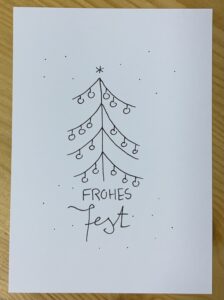 FROHES
Fest